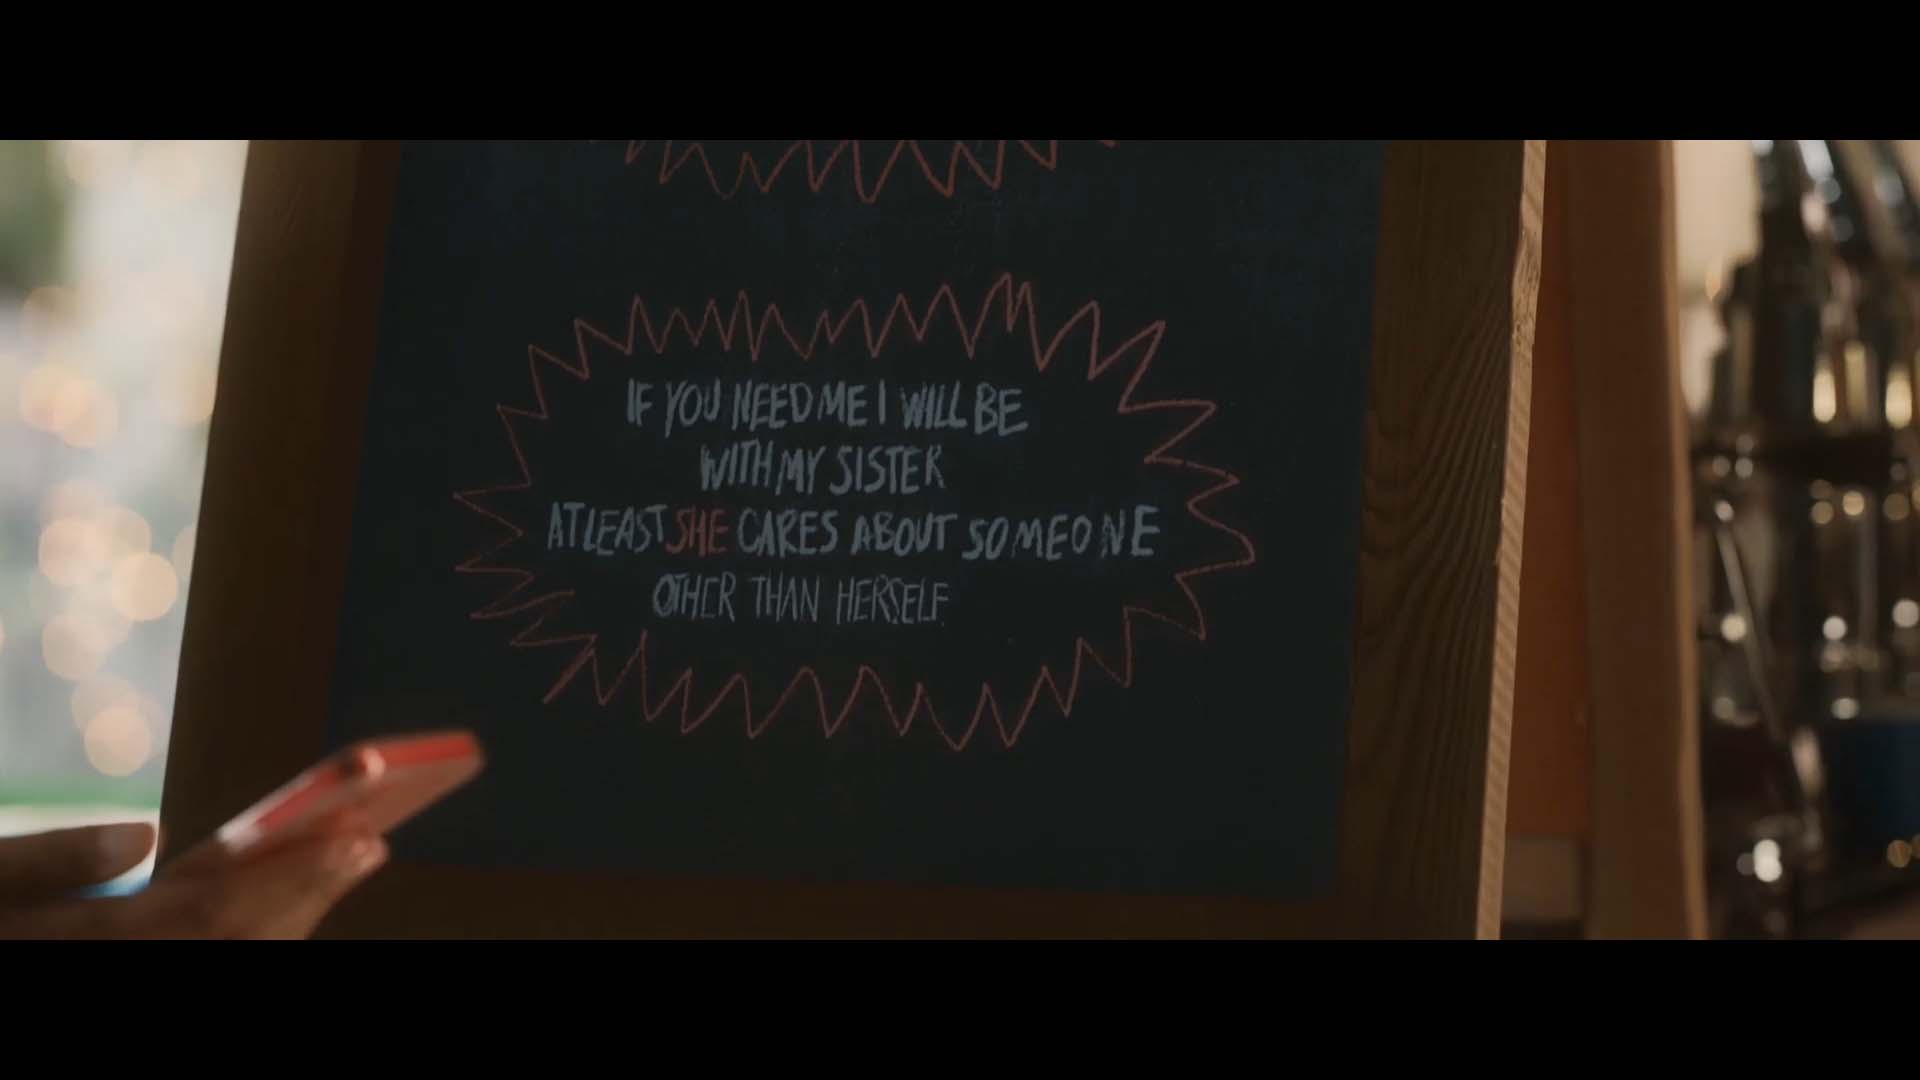 IF YOU NEED ME I WILL BE
WITH MY SISTER
AT LEAST SHE CARES ABOUT SOMEONE
OTHER THAN HERSELF